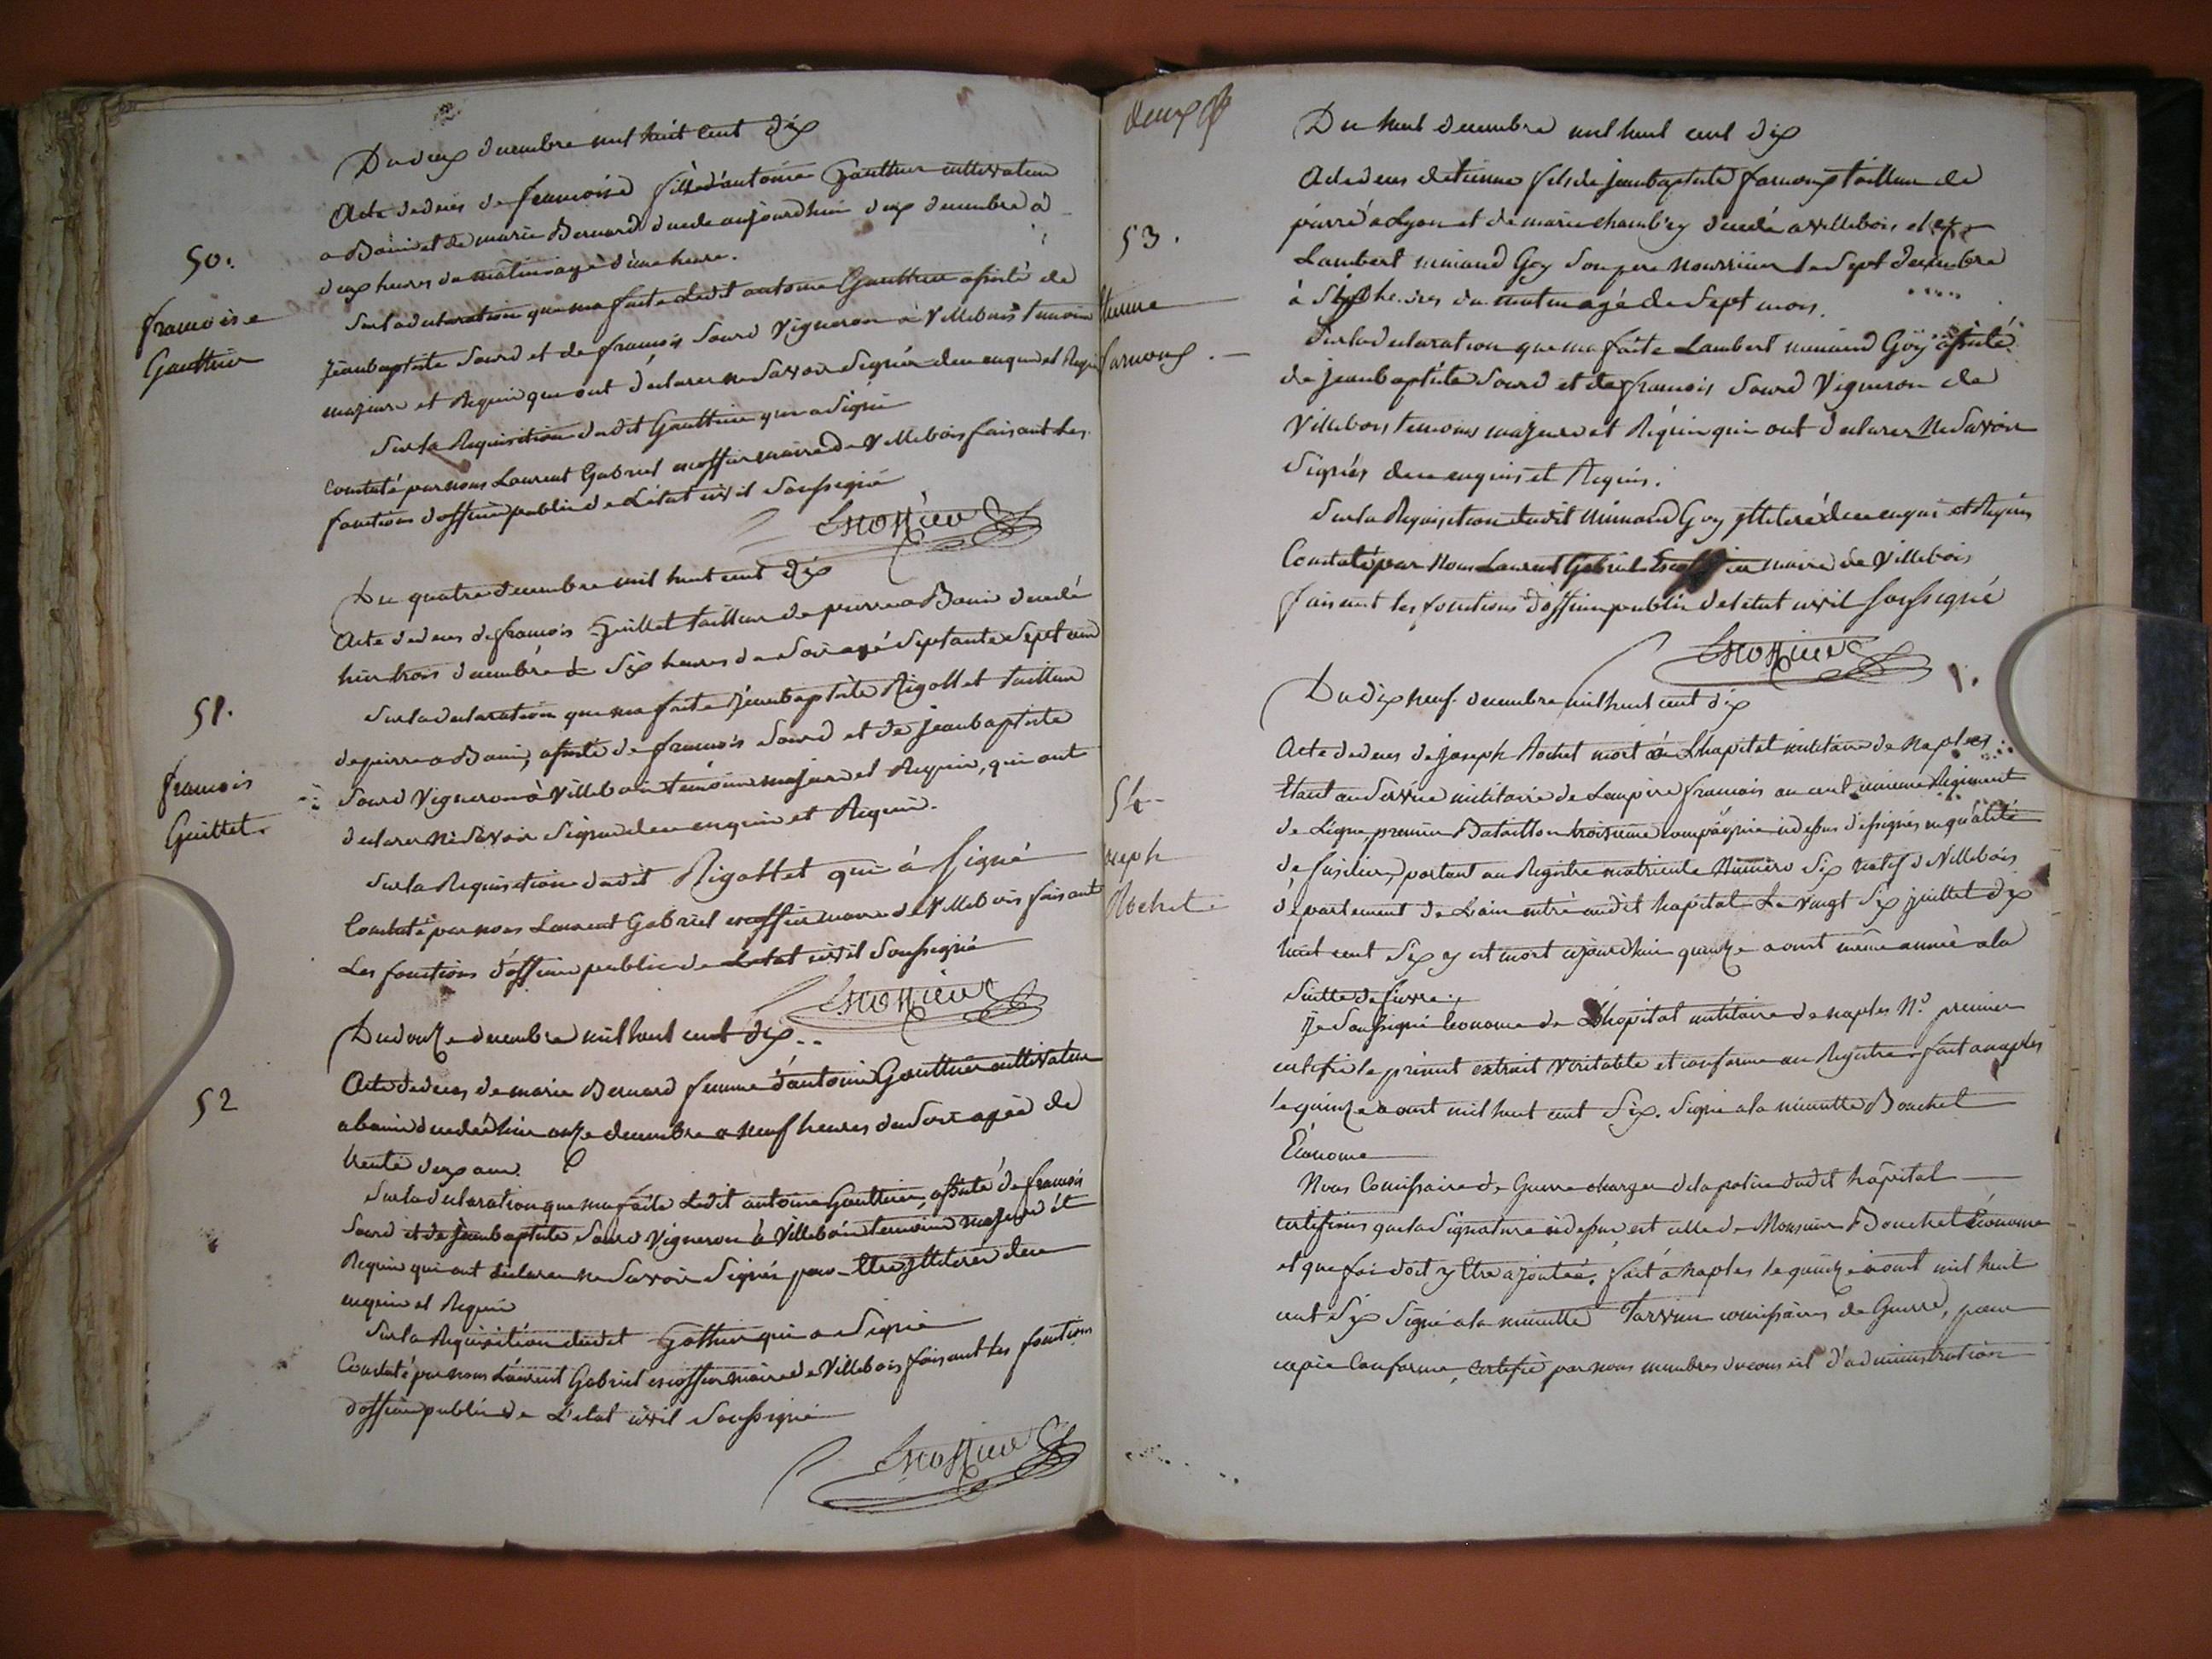 Du deux decembre mil huit cent dix
50.
francoise
Gauthier
Acte de deces de francoise fille d'antoine Gauthier cultivateur
a Bouis et de marie Bernard decede aujourdhui deux decembre à
deux heures du matin agé d'une heure.
Sur la declaration que ma faite Ledit antoine Gauthier assisté de
jeanbaptiste Sourd et de francois Sourd Vigneron à Villebois temoins
majeurs et Requis qui ont declarer ne Savoir Signér de ce enquis et Requis
Sur la Requisition dudit Gauthier qui a Signé
Constaté par nous Laurent Gabriel escoffier maire de Villebois faisant les
fonctions dofficier public de L'état civil Soussigné
Escoffier
Du quatre decembre mil huit cent dix
51.
francois
Guillet.
Acte de deces de francois Guillet tailleur de pierre a Bouis decedé
hier trois decembre à Six heures du Soir agé Septante Sept ans
Sur la declaration que ma faite jeanbaptiste Rigollet tailleur
de pierre a Bouis, assisté de francois Sourd et de jeanbaptiste
Sourd Vigneron à Villebois temoins majeurs et Requis, qui ont
declarer ne Savoir Signer de ce enquis et Requis.
Sur la Requisition dudit Rigollet qui à Signé
Constaté par nous Laurent Gabriel escoffier maire de Villebois faisant
Les fonctions d'officier public de Létat civil Soussigné
Escoffier
Du douze decembre mil huit cent dix..
52
Acte de deces de marie Bernard femme d'antoine Gauthier cultivateur
a bouis decedé hier onze decembre a neuf heures du Soir agée de
trente deux ans.
Sur la declaration que ma faite Ledit antoine Gauthier, assisté de francois
Sourd et de jeanbaptiste Sourd Vigneron à Villebois temoins majeurs et
Requis qui ont declarer ne Savoir Signér pour être illiteré de ce
enquis et Requis
Sur la Requisition dudit Gothier qui a Signé
Constaté par nous Laurent Gabriel escoffier maire de Villebois faisant les fonctions
dofficier public de L'etat civil Soussigné
Escoffier
Du huit decembre mil huit cent dix
53.
Etienne
farnoux.
Acte de deces detienne fils de jeanbaptiste farnoux tailleur de
pierre à Lyon et de marie chambéy decedé a villebois et
Lambert minand Goy Son pere nourricier Le Sept decembre
à Six heures du matin agé de Sept mois.
Sur la declaration que ma faite Lambert minand Goy assisté
de jeanbaptiste Sourd et de francois Sourd Vigneron de
Villebois temoins majeurs et Réquis qui ont declarer Ne Savoir
Signér de ce enquis et Requis.
Sur la Requisition dudit minand Goy illiteré de ce enquis et Réquis
Constaté par Nous Laurent Gabriel Escoffier maire de Villebois
faisant les fonctions d'officier public de letat civil Soussigné
Escoffier
Du dix neuf decembre mil huit cent dix
54
joseph
Rochet.
Acte de deces de joseph Rochet mort à Lhopital militaire de naples
Etant au Service militaire de Lempire francais au cent unieme Regiment
de Ligne, premier Bataillon troisieme compagnie cidessus designés en qualité
de fusilier, portant au Registre matricule Numéro Six natif de Villebois
département de Lain entré audit hopital Le Vingt Six juillet dix
huit cent Six y est mort aujourdhui quinze aoust même année a la
Suitte de fievre.
Je Soussigné Econome de Lhopital militaire de naples N.º premier
certifie le présent extrait Veritable et conforme au Registre. fait a naples
le quinze aoust mil huit cent Six. Signé a la minutte Bouchet
Économe
Nous Comissaire de Guerre charger de la police dudit hôpital
certifions que la Signature cidessus est celle de Monsieur Bouchet Économe
et que foi doit y être ajoutée. fait à naples le quinze aoust mil huit
cent Six Signé a la minutte comissaire de Guerre, pour
copie Conforme, certifié par nous membres du conseil d'administration